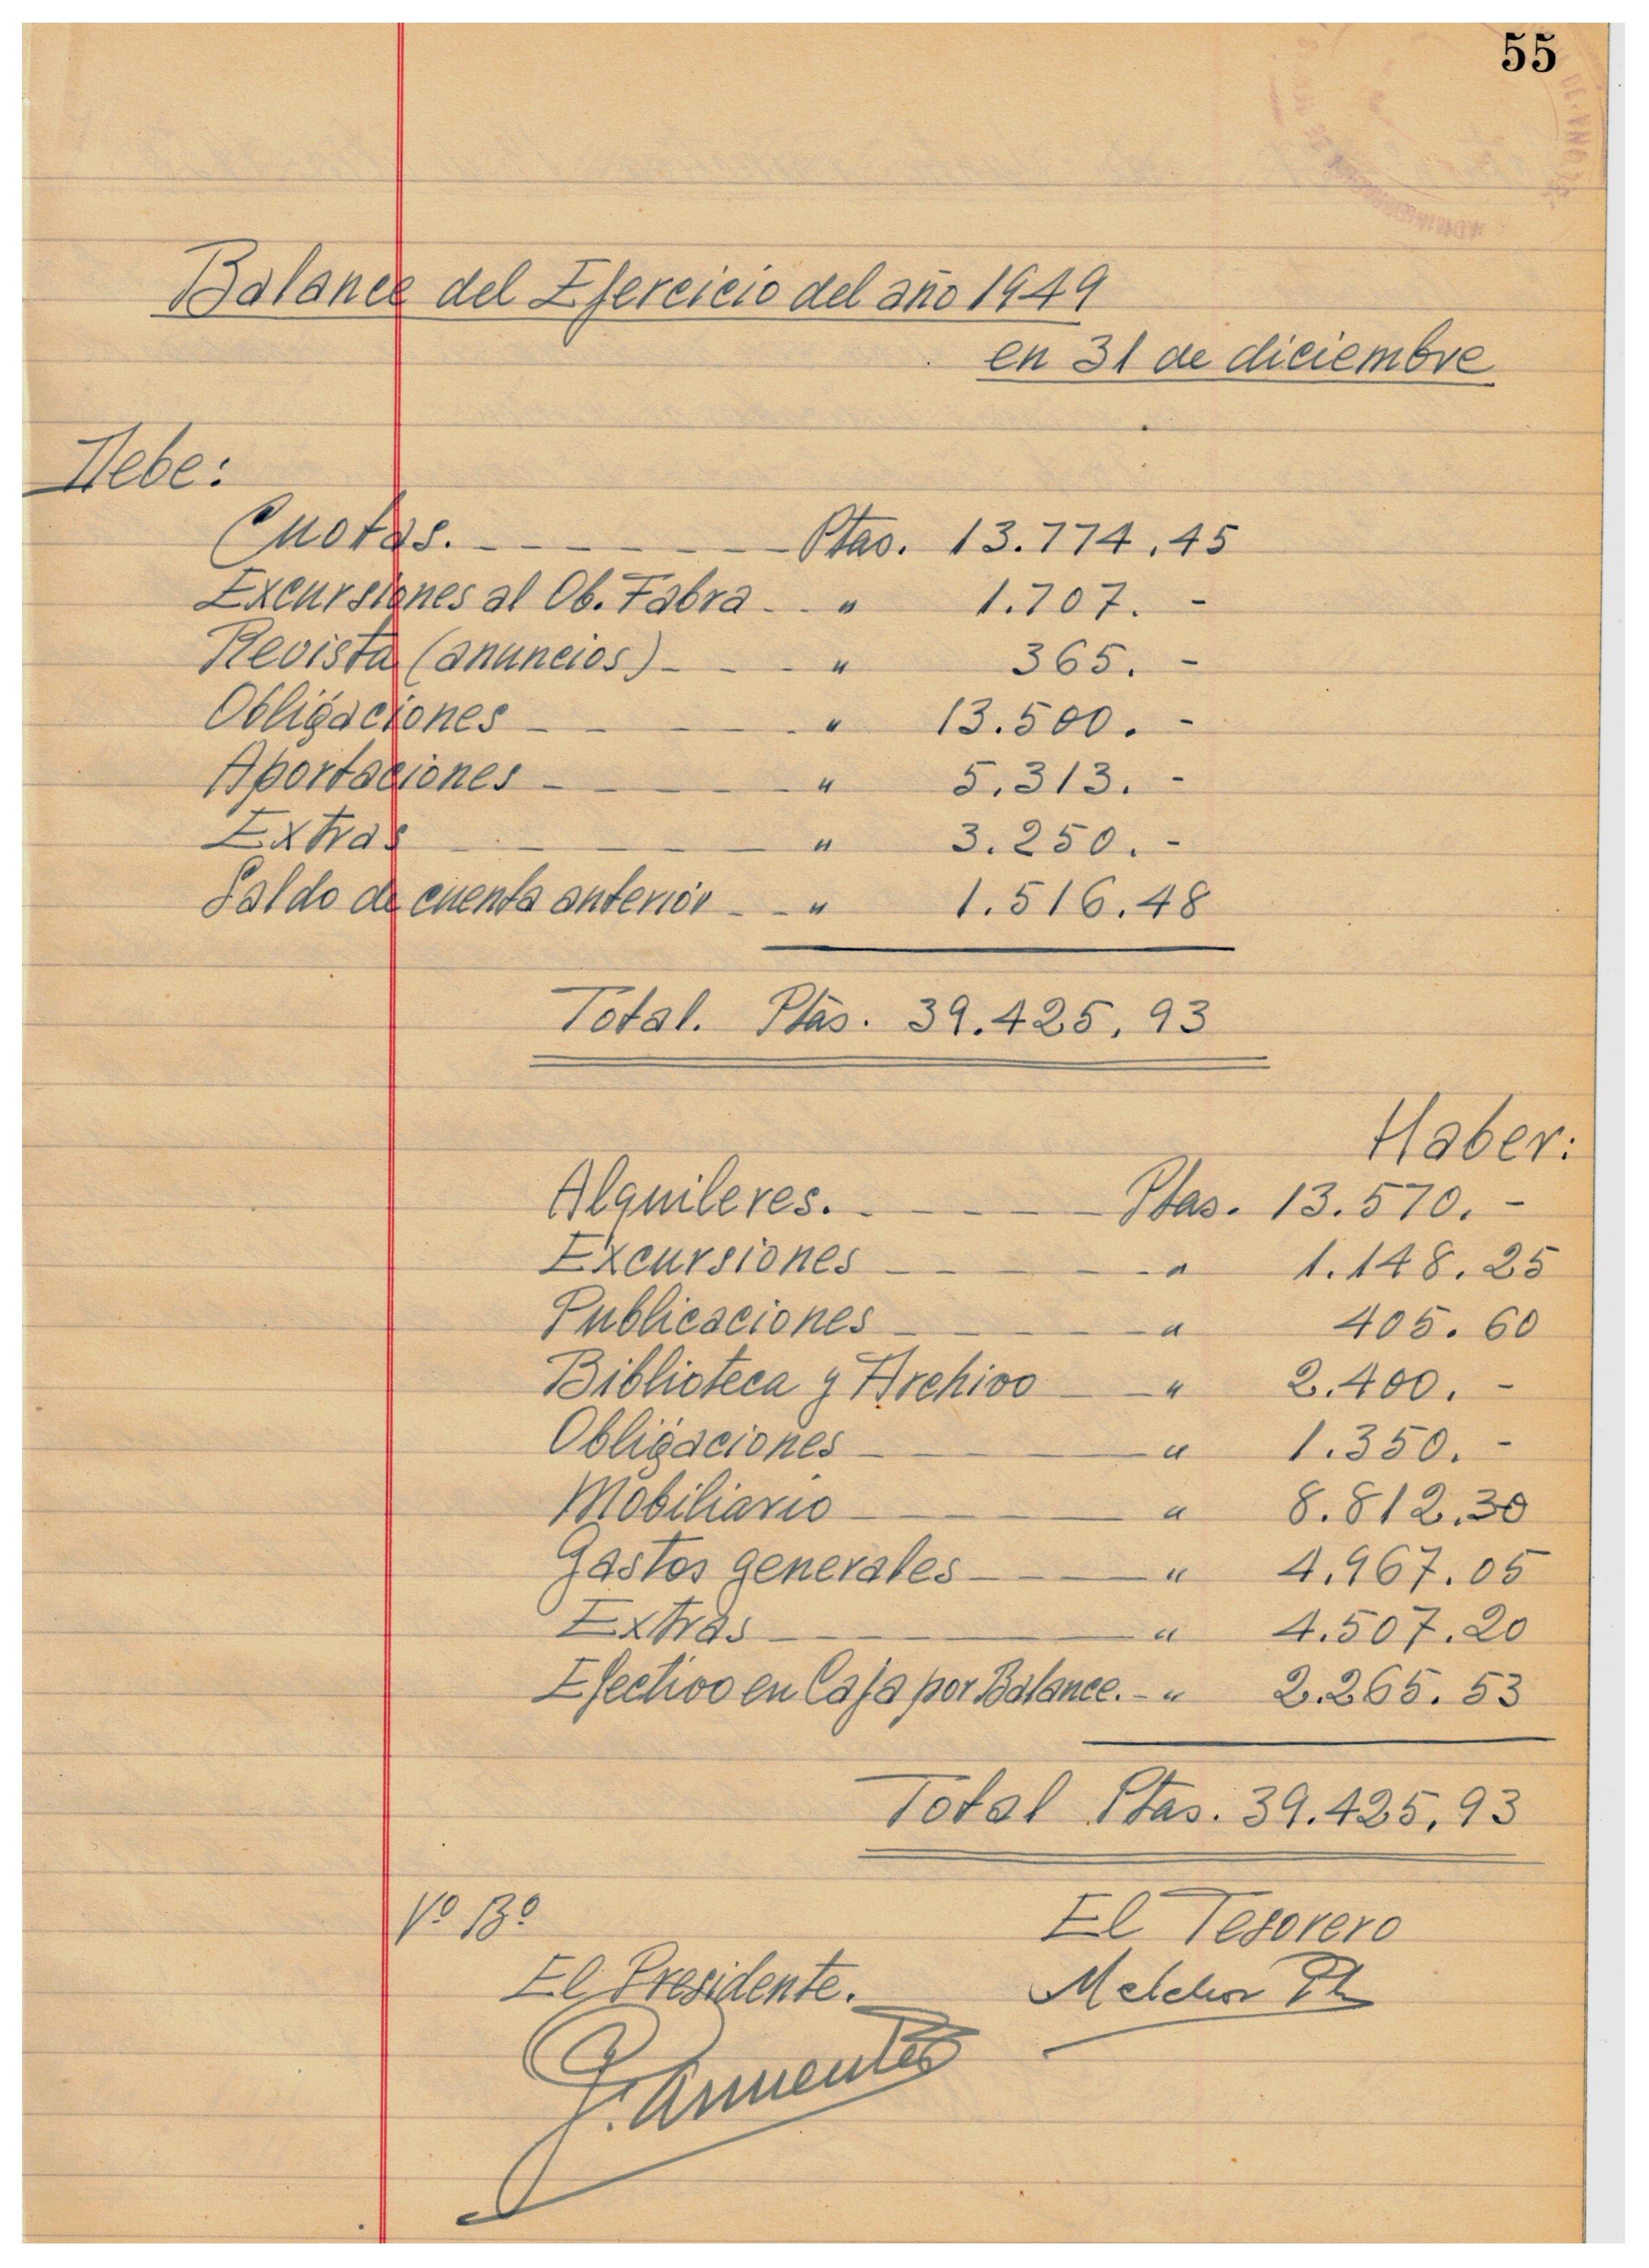 55
Balance del Ejercicio del año 1949
en 31 de diciembre
Debe:
Cuotas. - - - - - - - Ptas. 13.774,45
Excursiones al Ob. Fabra - - " 1.707. -
Revista (anuncios) - - - " 365. -
Obligaciones - - - - - " 13.500. -
Aportaciones - - - - - " 5.313. -
Extras - - - - - " 3.250. -
Saldo de cuenta anterior - - " 1.516.48
Total. Ptas. 39.425,93
Haber:
Alquileres. - - - - - Ptas. 13.570. -
Excursiones - - - - - " 1.148.25
Publicaciones - - - - " 405.60
Biblioteca y Archivo - - " 2.400. -
Obligaciones - - - " 1.350. -
Mobiliario - - - - " 8.812.30
Gastos generales - - - " 4.967.05
Extras - - - " 4.507.20
Efectivo en Caja por Balance. - " 2.265.53
Total Ptas. 39.425,93
Vº Bº
El Tesorero
El Presidente.
Melchor